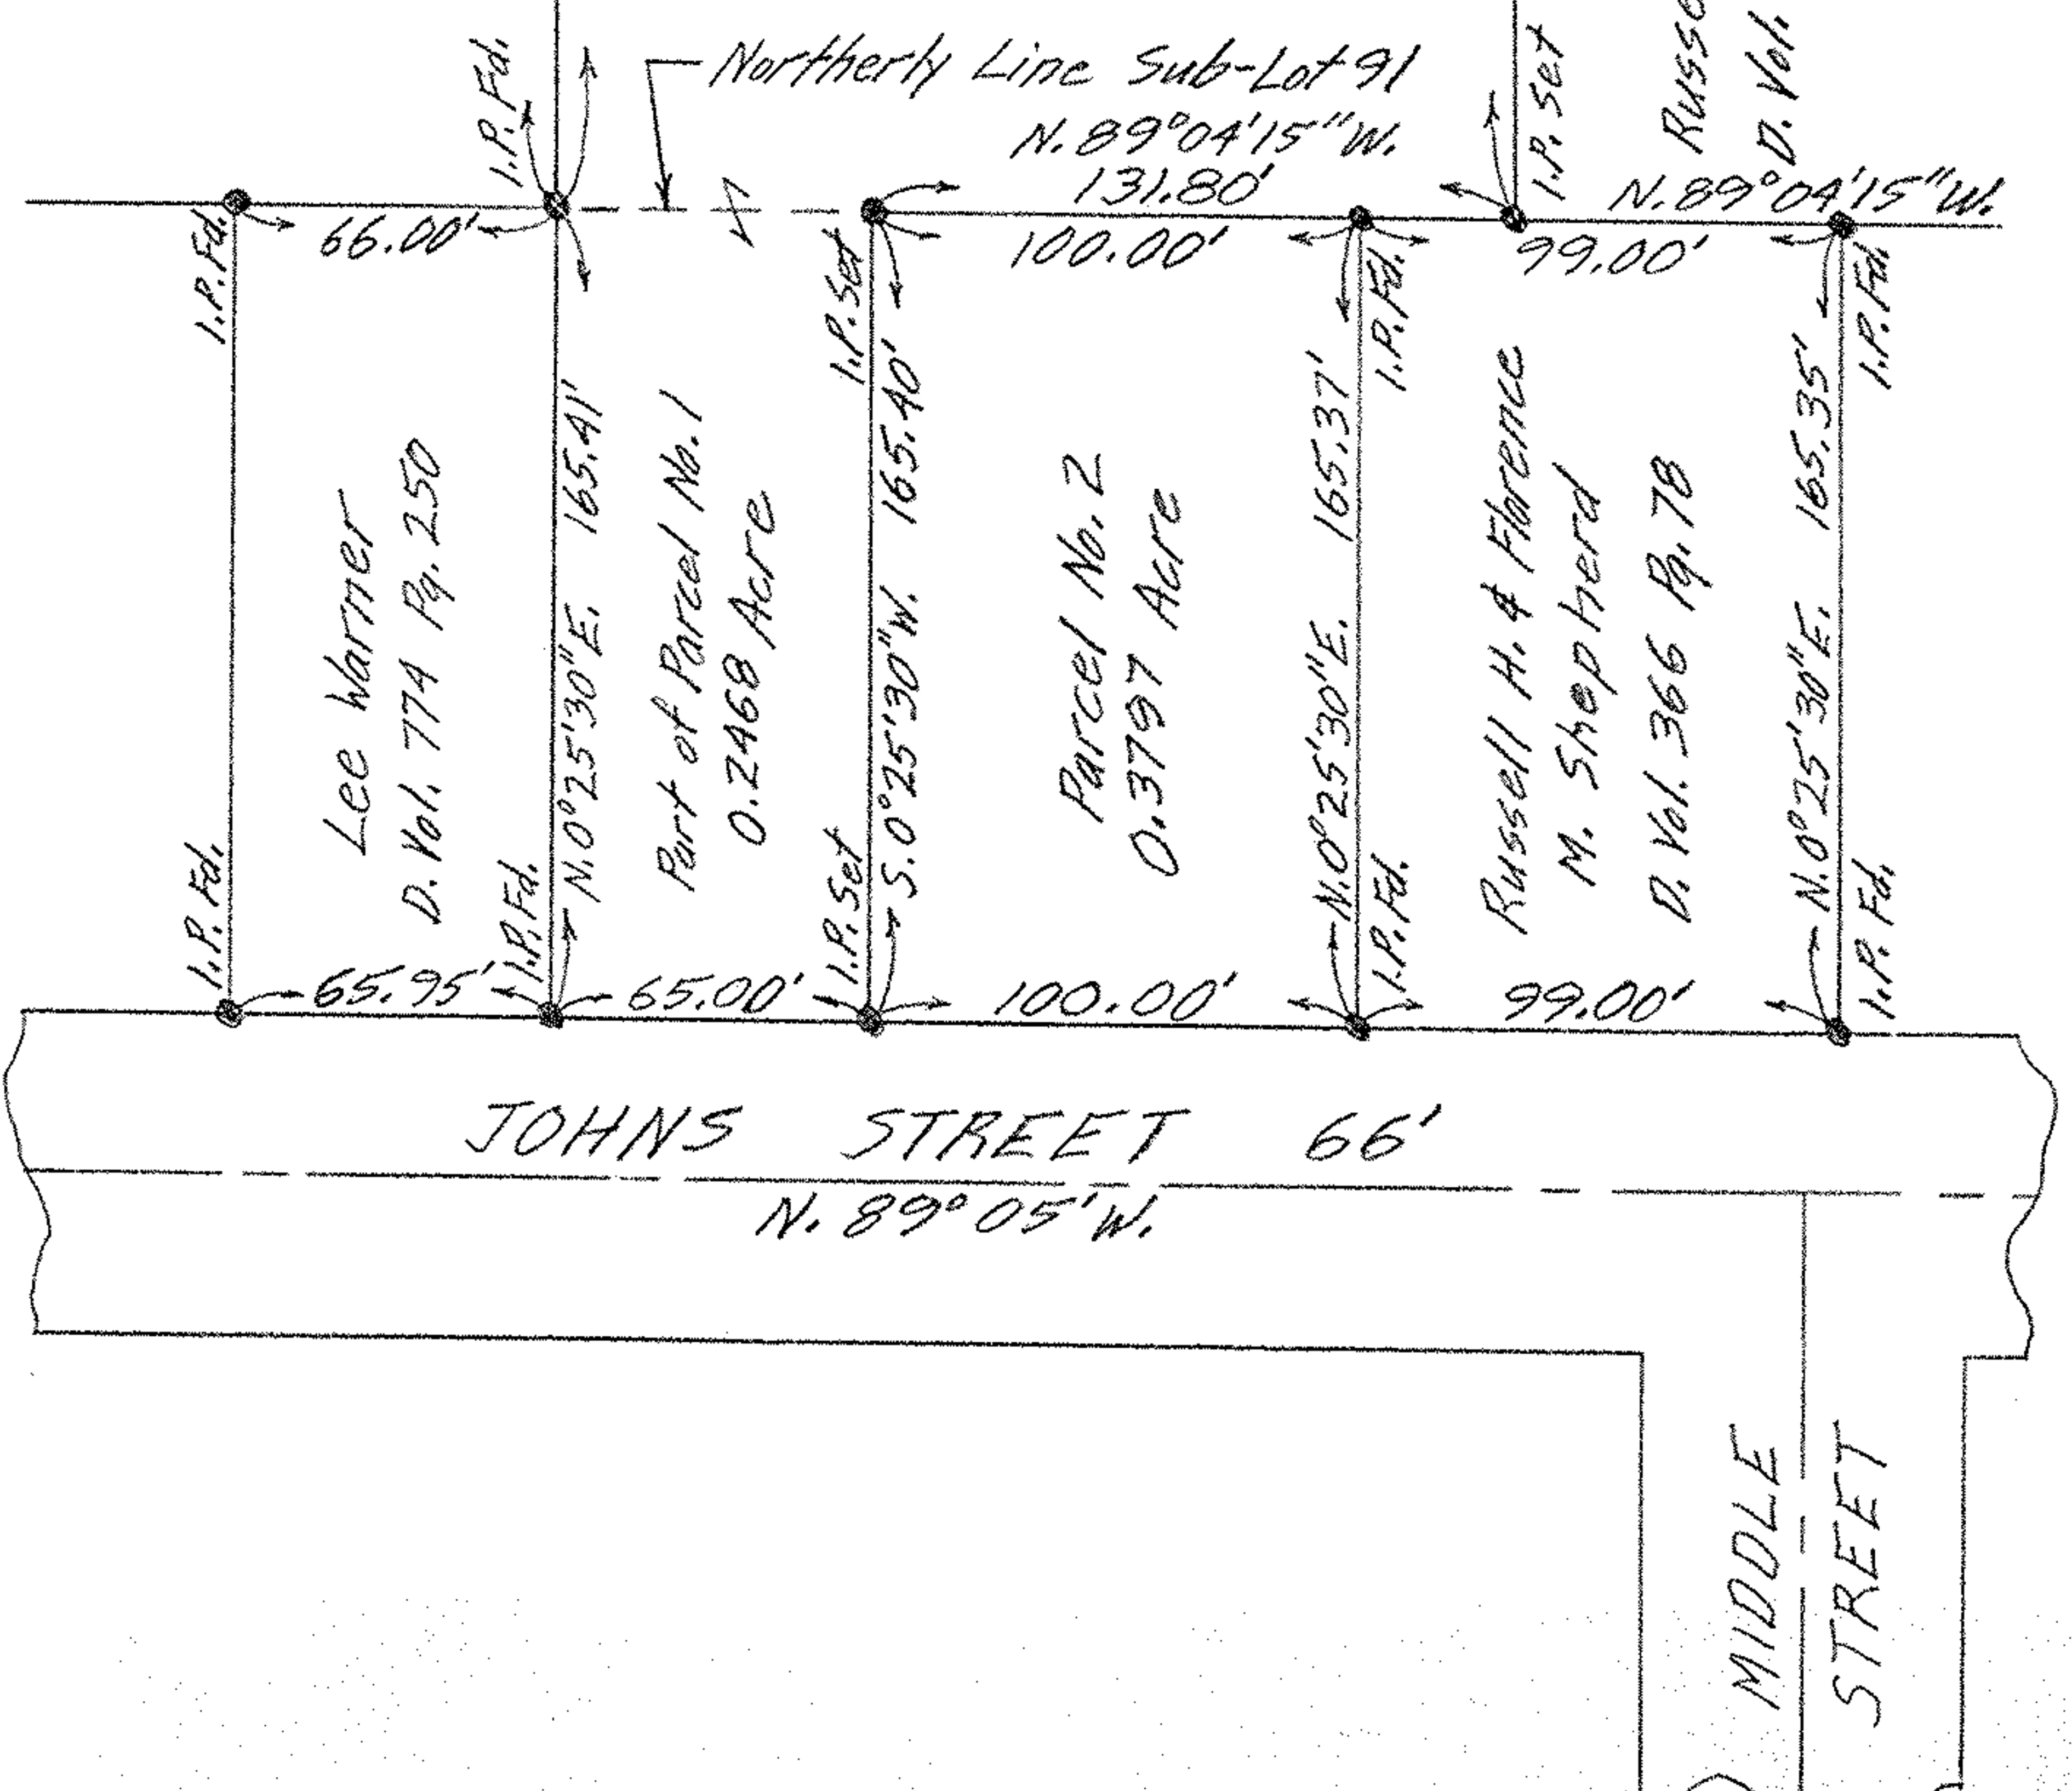 I.P. Fd.
Northerly Line Sub-Lot 91
N. 89°04'15" W.
131.80'
I.P. Set
D. Vol.
N. 89°04'15" W.
I.P. Fd.
66.00'
I.P. Set
100.00'
I.P. Fd.
99.00'
I.P. Fd.
Lee Warner
D. Vol. 774 Pg. 250
N. 0°25'30" E. 165.41'
Part of Parcel No. 1
0.2468 Acre
S. 0°25'30" W. 165.40'
Parcel No. 2
0.3797 Acre
N. 0°25'30" E. 165.37'
Russell H. & Florence
M. Shepherd
D. Vol. 366 Pg. 78
N. 0°25'30" E. 165.35'
I.P. Fd.
65.95'
I.P. Fd.
65.00'
I.P. Set
100.00'
I.P. Fd.
99.00'
I.P. Fd.
JOHNS STREET 66'
N. 89°05' W.
MIDDLE
STREET